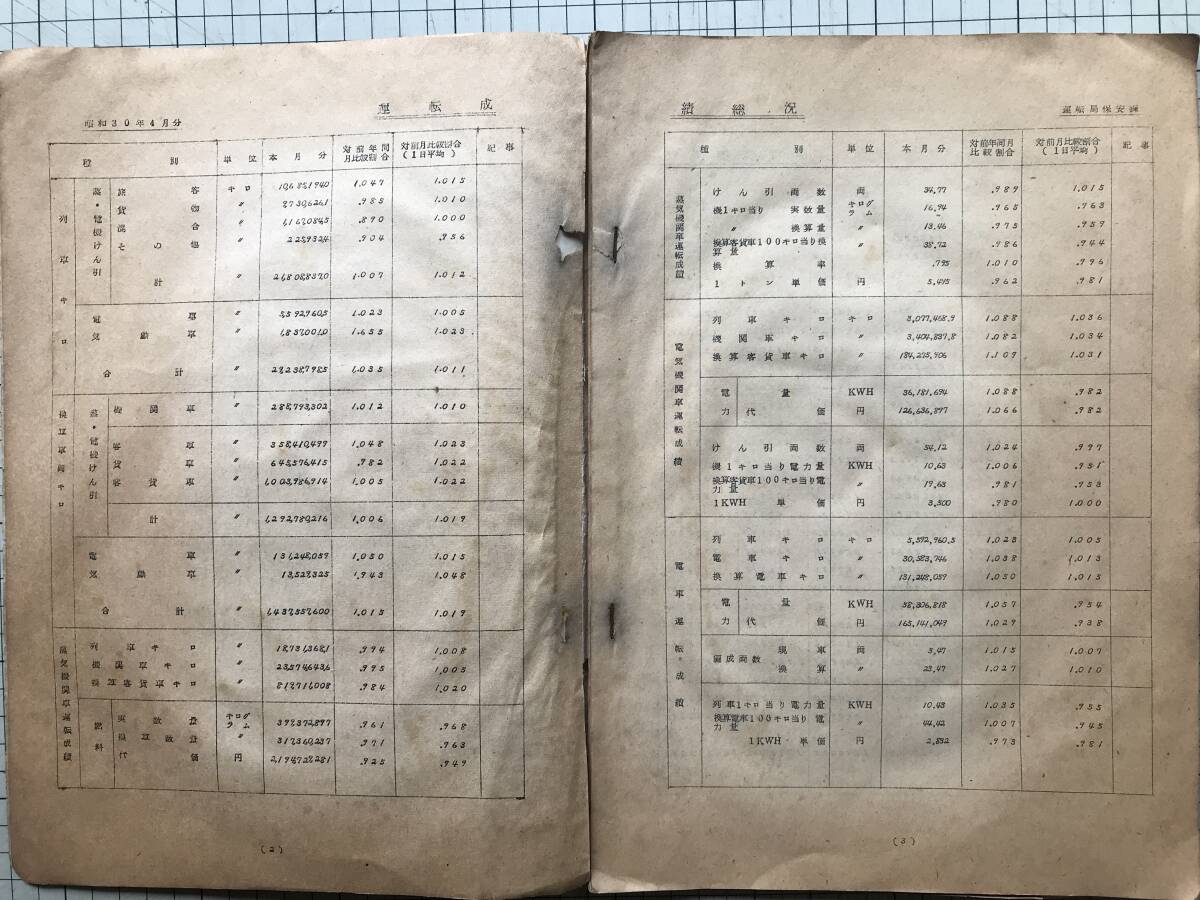 運転成
昭和30年4月分
種別 単位 本月分 対前年同月比較割合 対前月比較割合（1日平均） 記事
列車キロ
蒸・電機けん引
旅客 キロ 1.047 1.015
貨物 〃 .985 1.010
混合 〃 .890 1.000
その他 〃 .904 .956
計 〃 1.007 1.012
電車 〃 5,592,960.5 1.023 1.005
気動車 〃 1,837,001.0 1.655 1.023
合計 〃 1.035 1.011
換算車両キロ
蒸・電機けん引
機関車 〃 288,793,302 1.012 1.010
客車 〃 358,410,499 1.048 1.023
貨車 〃 645,576,415 .982 1.022
客貨車 〃 1,003,986,914 1.005 1.022
計 〃 1,292,780,216 1.006 1.019
電車 〃 131,248,059 1.050 1.015
気動車 〃 13,529,325 1.943 1.048
合計 〃 1,437,557,600 1.015 1.019
蒸気機関車運転成績
列車キロ 〃 18,731,368.1 .994 1.008
機関車キロ 〃 23,574,643.6 .995 1.005
換算客貨車キロ 〃 819,711,008 .984 1.020
燃料
実数量 キログラム 399,372,897 .961 .968
換算数量 〃 317,360,237 .971 .963
代価 円 2,194,728,281 .925 .949
(2)
績総況
運転局保安課
種別 単位 本月分 対前年同月比較割合 対前月比較割合（1日平均） 記事
蒸気機関車運転成績
けん引両数 両 34.77 .989 1.015
機1キロ当り 実数量 キログラム 16.94 .965 .963
〃 換算量 〃 13.46 .975 .959
換算客貨車100キロ当り換算量 〃 38.72 .986 .944
換算率 .795 1.010 .996
1トン単価 円 5,495 .962 .981
電気機関車運転成績
列車キロ キロ 3,077,468.9 1.088 1.036
機関車キロ 〃 3,404,837.8 1.082 1.034
換算客貨車キロ 〃 184,275,906 1.109 1.031
電力
量 KWH 36,181,694 1.088 .982
代価 円 126,636,897 1.066 .982
けん引両数 両 54.12 1.024 .997
機1キロ当り電力量 KWH 10.63 1.006 .951
換算客貨車100キロ当り電力量 〃 19.63 .981 .953
1KWH単価 円 3,500 .980 1.000
電車運転成績
列車キロ キロ 5,592,960.5 1.023 1.005
電車キロ 〃 30,583,746 1.038 1.013
換算電車キロ 〃 131,248,059 1.050 1.015
電力
量 KWH 58,306,818 1.057 .954
代価 円 165,141,049 1.029 .938
編成両数
現車 両 5.47 1.015 1.007
換算 〃 23.47 1.027 1.010
列車1キロ当り電力量 KWH 10.43 1.035 .955
換算電車100キロ当り電力量 〃 44.42 1.007 .945
1KWH単価 円 2,832 .973 .981
(3)